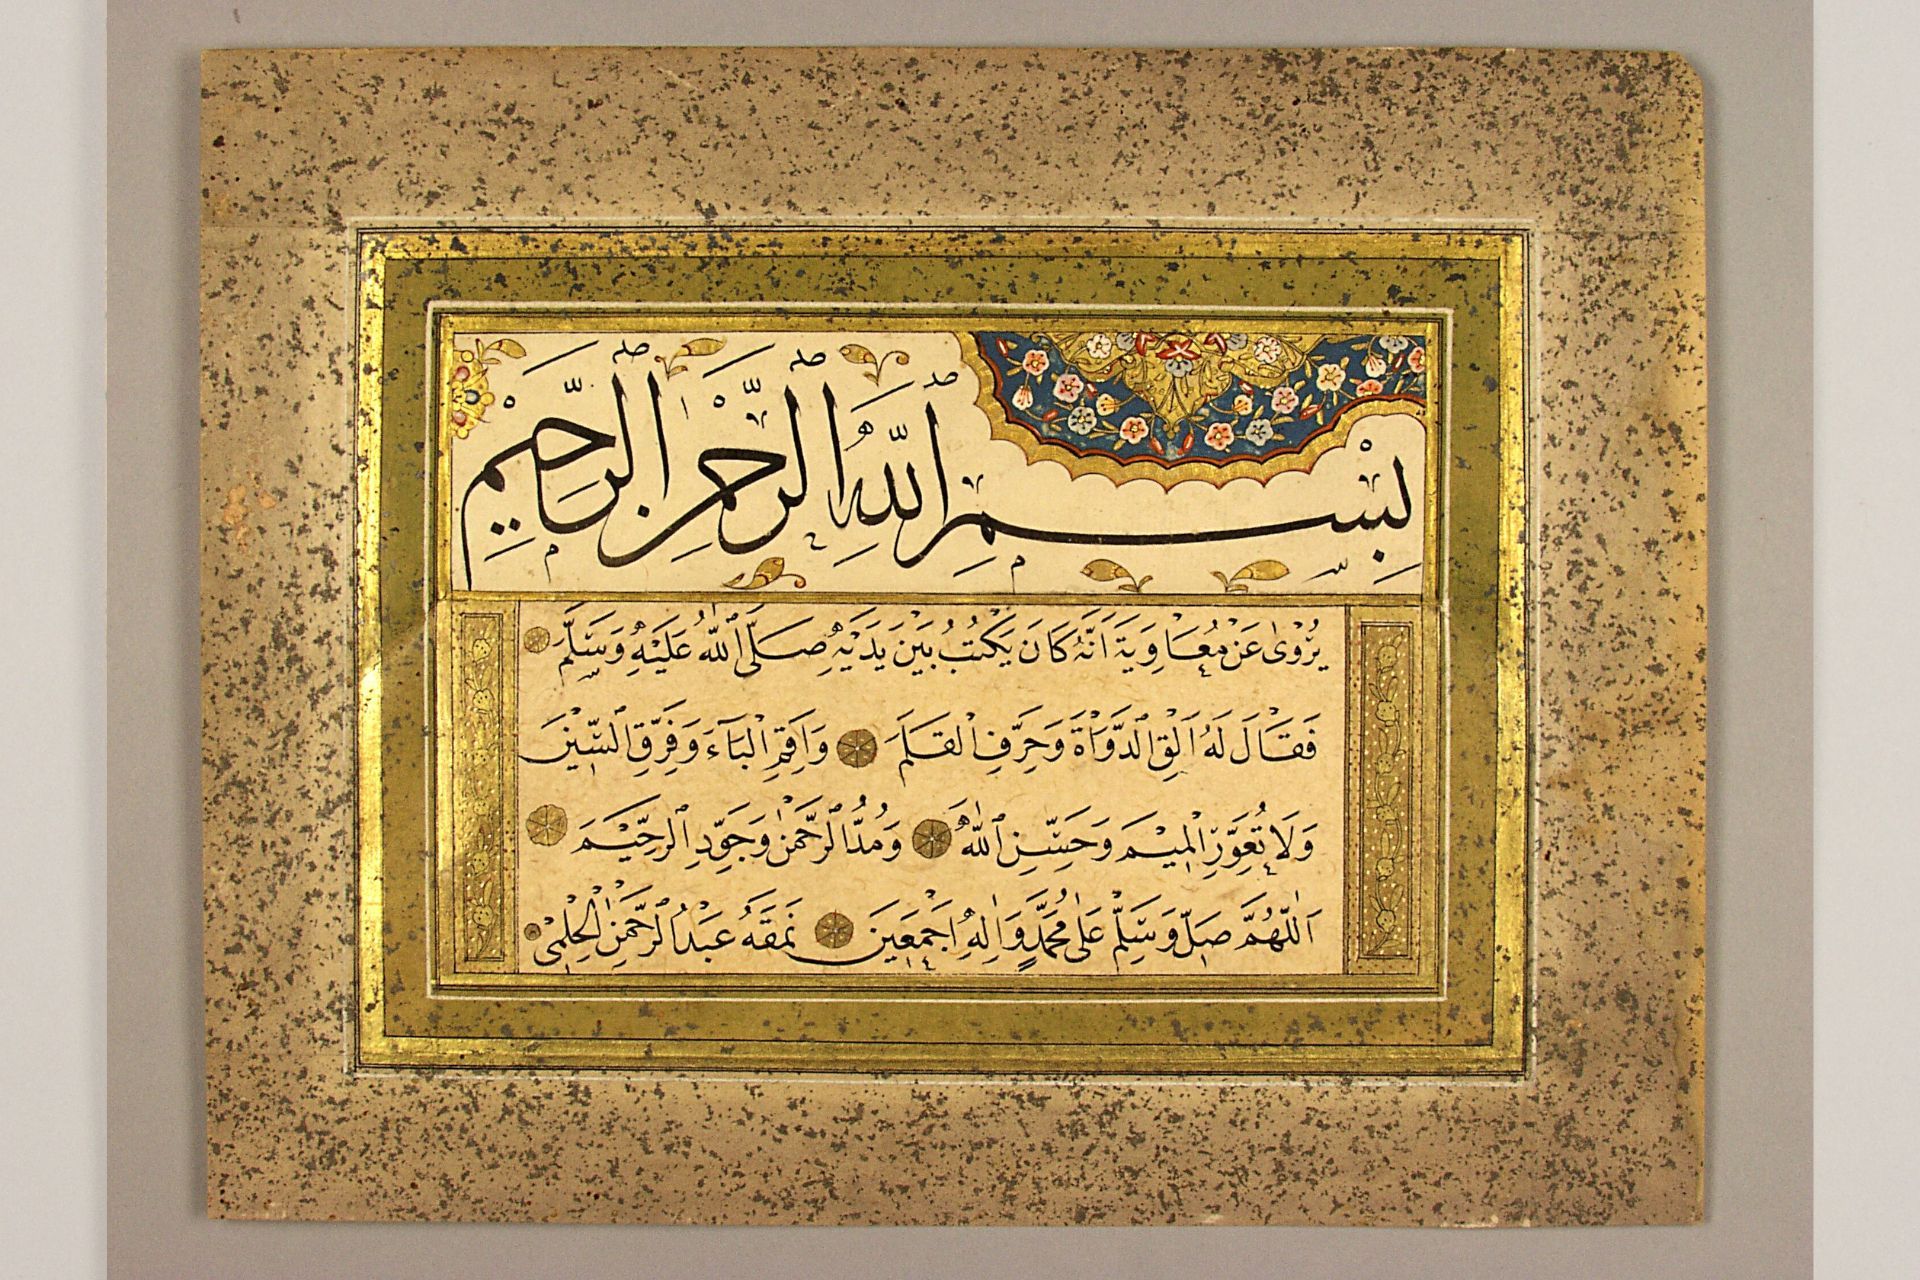 بِسْمِ اللّٰهِ الرَّحْمٰنِ الرَّحِيمِ
يُرْوٰى عَنْ مُعَاوِيَةَ اَنَّهُ كَانَ يَكْتُبُ بَيْنَ يَدَيْهِ صَلَّى اللّٰهُ عَلَيْهِ وَسَلَّمَ
فَقَالَ لَهُ اَلِقِ الدَّوَاةَ وَحَرِّفِ الْقَلَمَ وَاَقِمِ الْبَاءَ وَفَرِّقِ السِّينَ
وَلَا تُعَوِّرِ الْمِيْمَ وَحَسِّنِ اللّٰهَ وَمُدَّ الرَّحْمٰنَ وَجَوِّدِ الرَّحِيْمَ
اَللّٰهُمَّ صَلِّ وَسَلِّمْ عَلٰى مُحَمَّدٍ وَاٰلِهِ اَجْمَعِينَ نَمَقَهُ عَبْدُ الرَّحْمٰنِ الْحِلْمِيْ